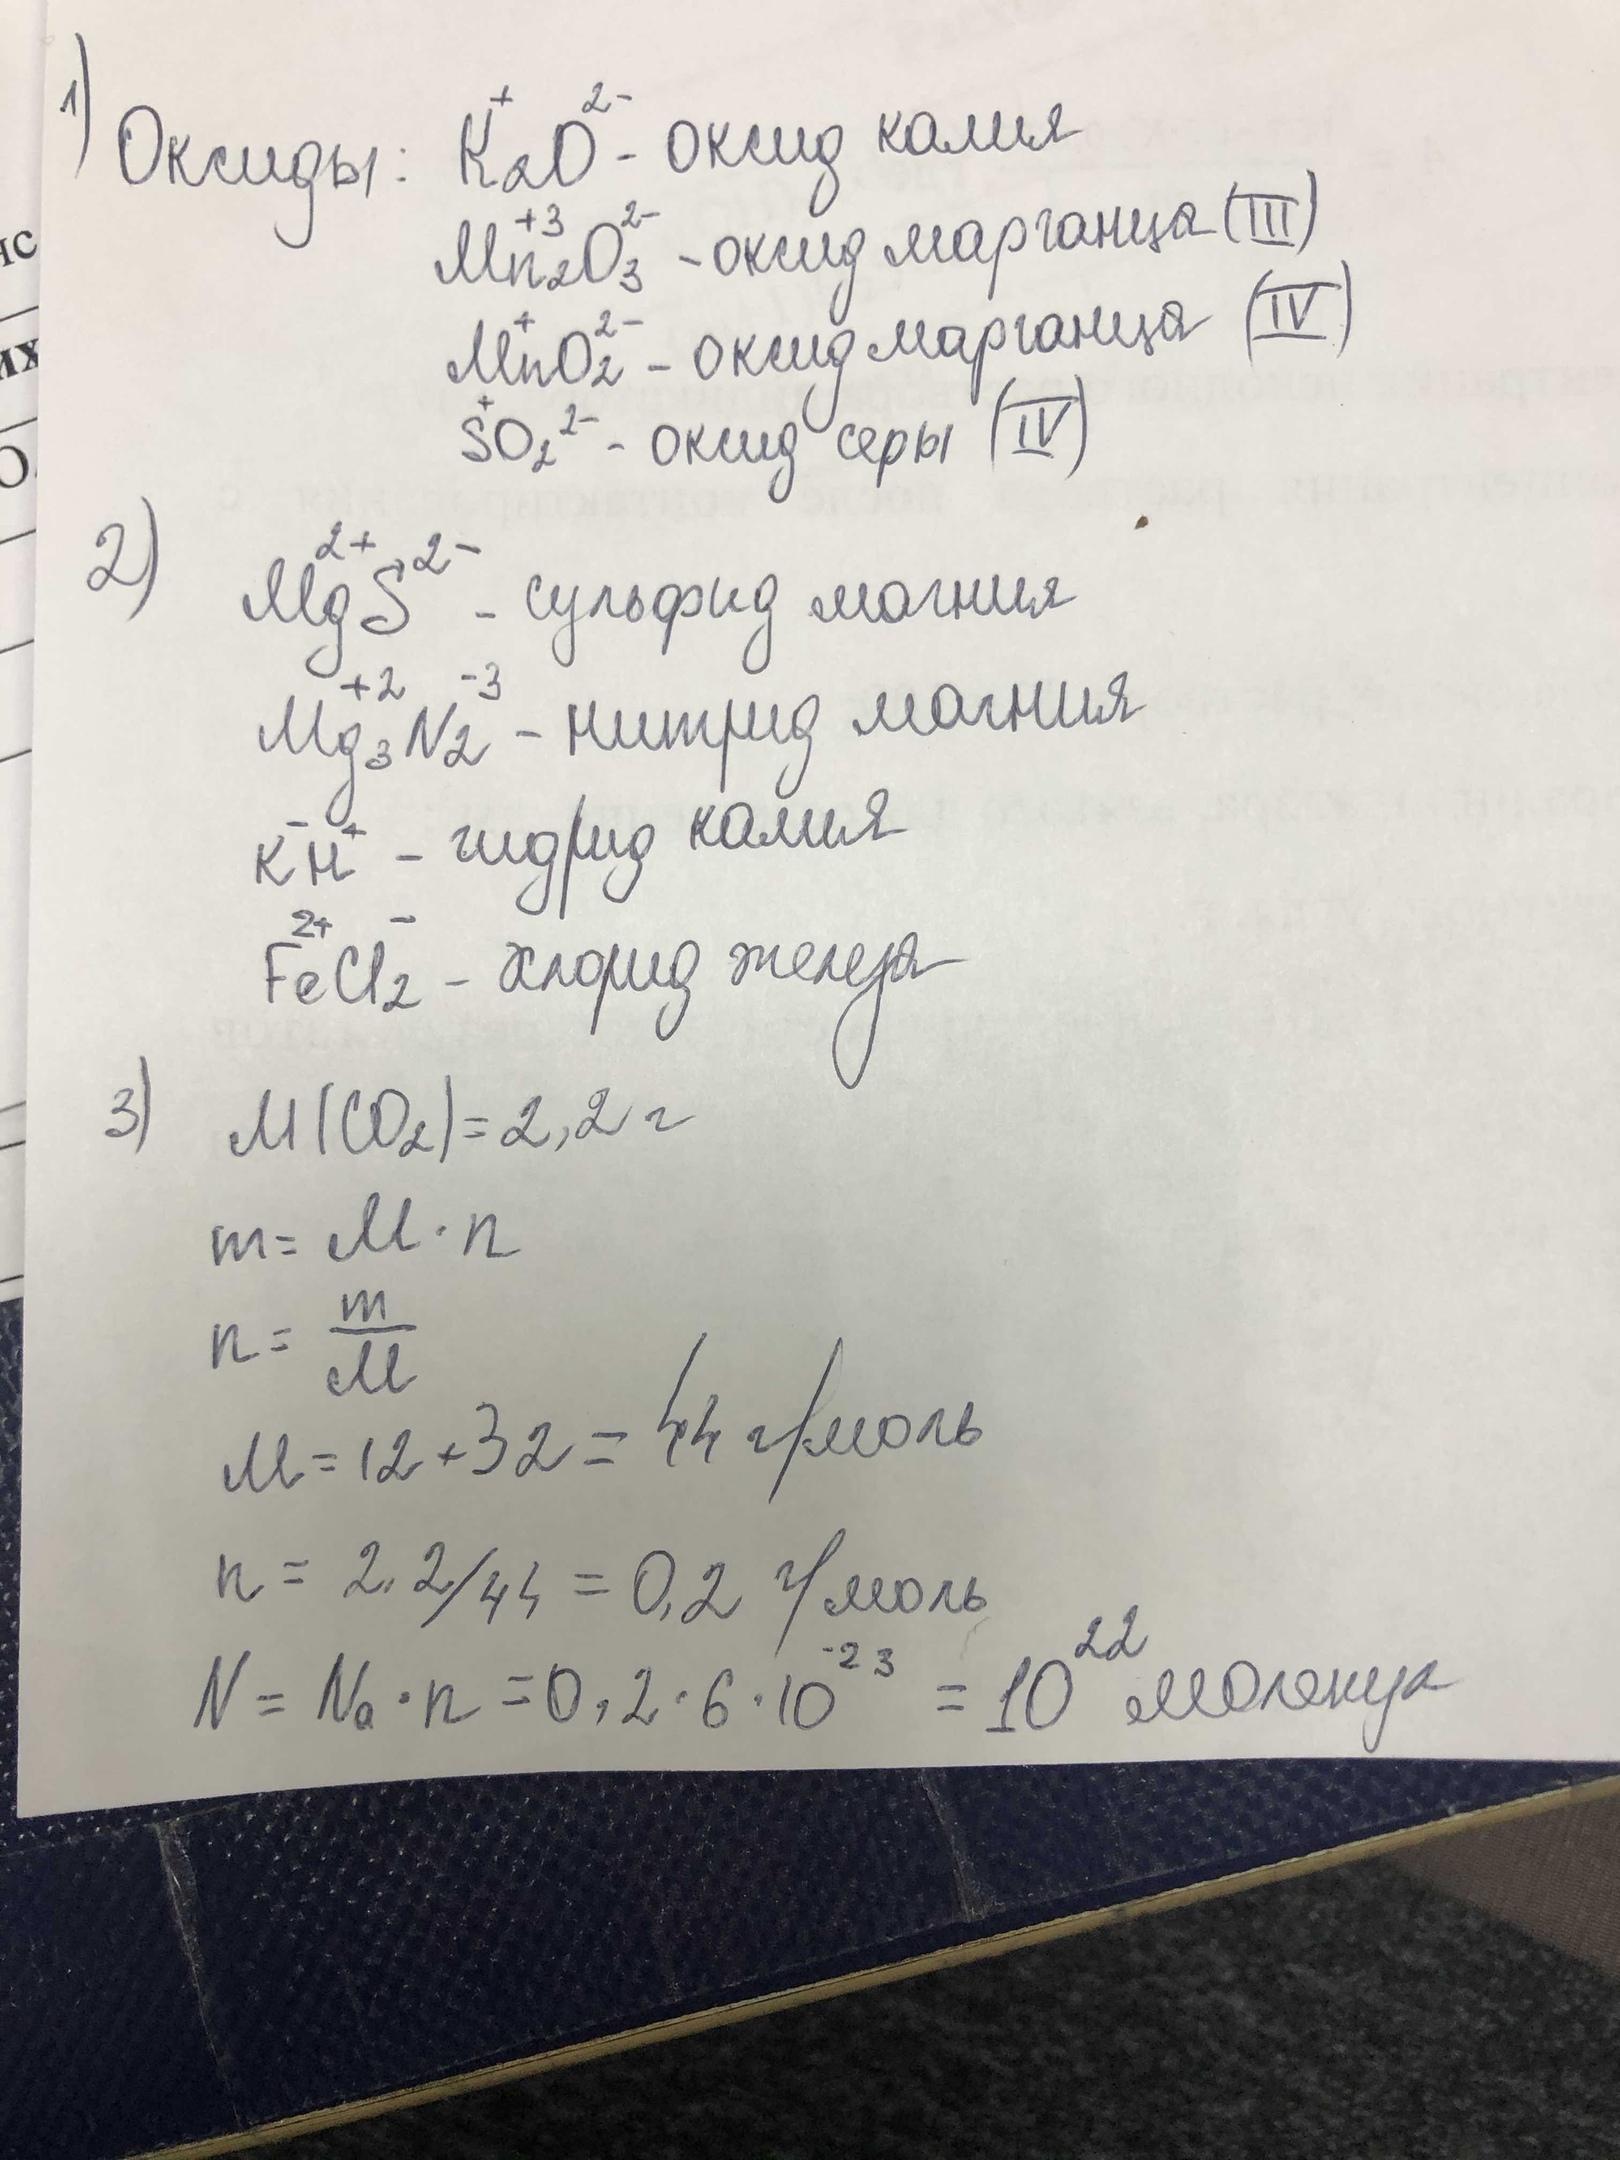 1) Оксиды: K₂⁺O²⁻ - оксид калия
Mn₂⁺³O₃²⁻ - оксид марганца (III)
Mn⁺O₂²⁻ - оксид марганца (IV)
S⁺O₂²⁻ - оксид серы (IV)
2) Mg²⁺S²⁻ - сульфид магния
Mg₃⁺²N₂⁻³ - нитрид магния
K⁻H⁺ - гидрид калия
Fe²⁺Cl₂⁻ - хлорид железа
3) M(CO₂) = 2,2 г
m = M · n
n = m/M
M = 12 + 32 = 44 г/моль
n = 2.2/44 = 0,2 г/моль
N = Na · n = 0,2 · 6 · 10⁻²³ = 10²² молекул
ис
их
О.